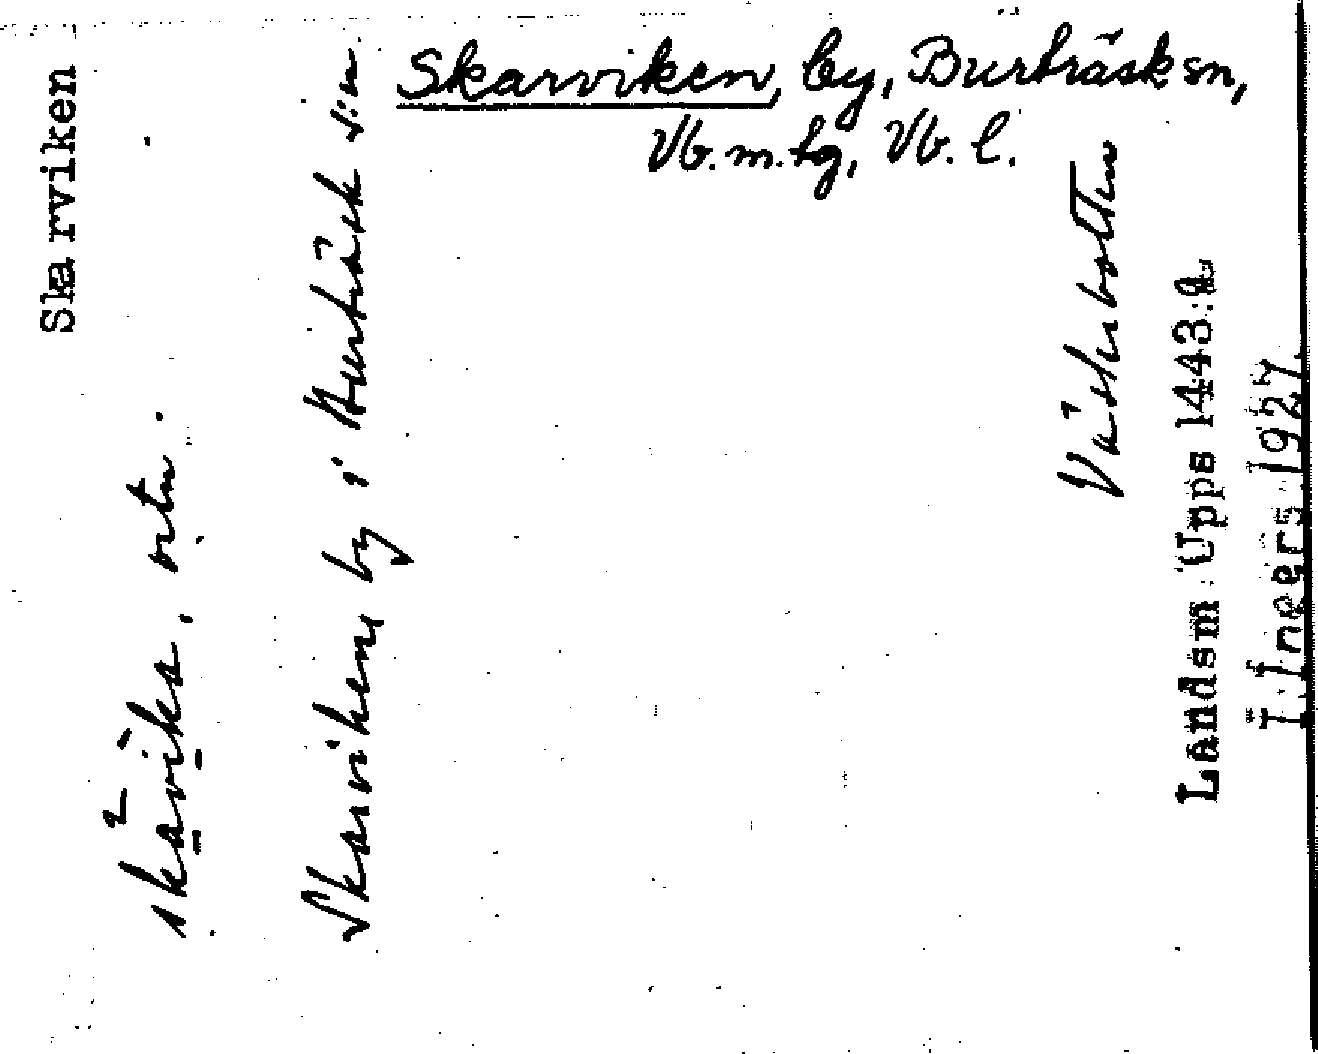 Skarviken, by, Burträsk sn,
Vb. m. tg, Vb. l.
Skarviken
skàvika, ortn.
Skarviken by i Burträsk s:n
Västerbotten
Landsm Upps 1443:a
I. Ingers 1927.